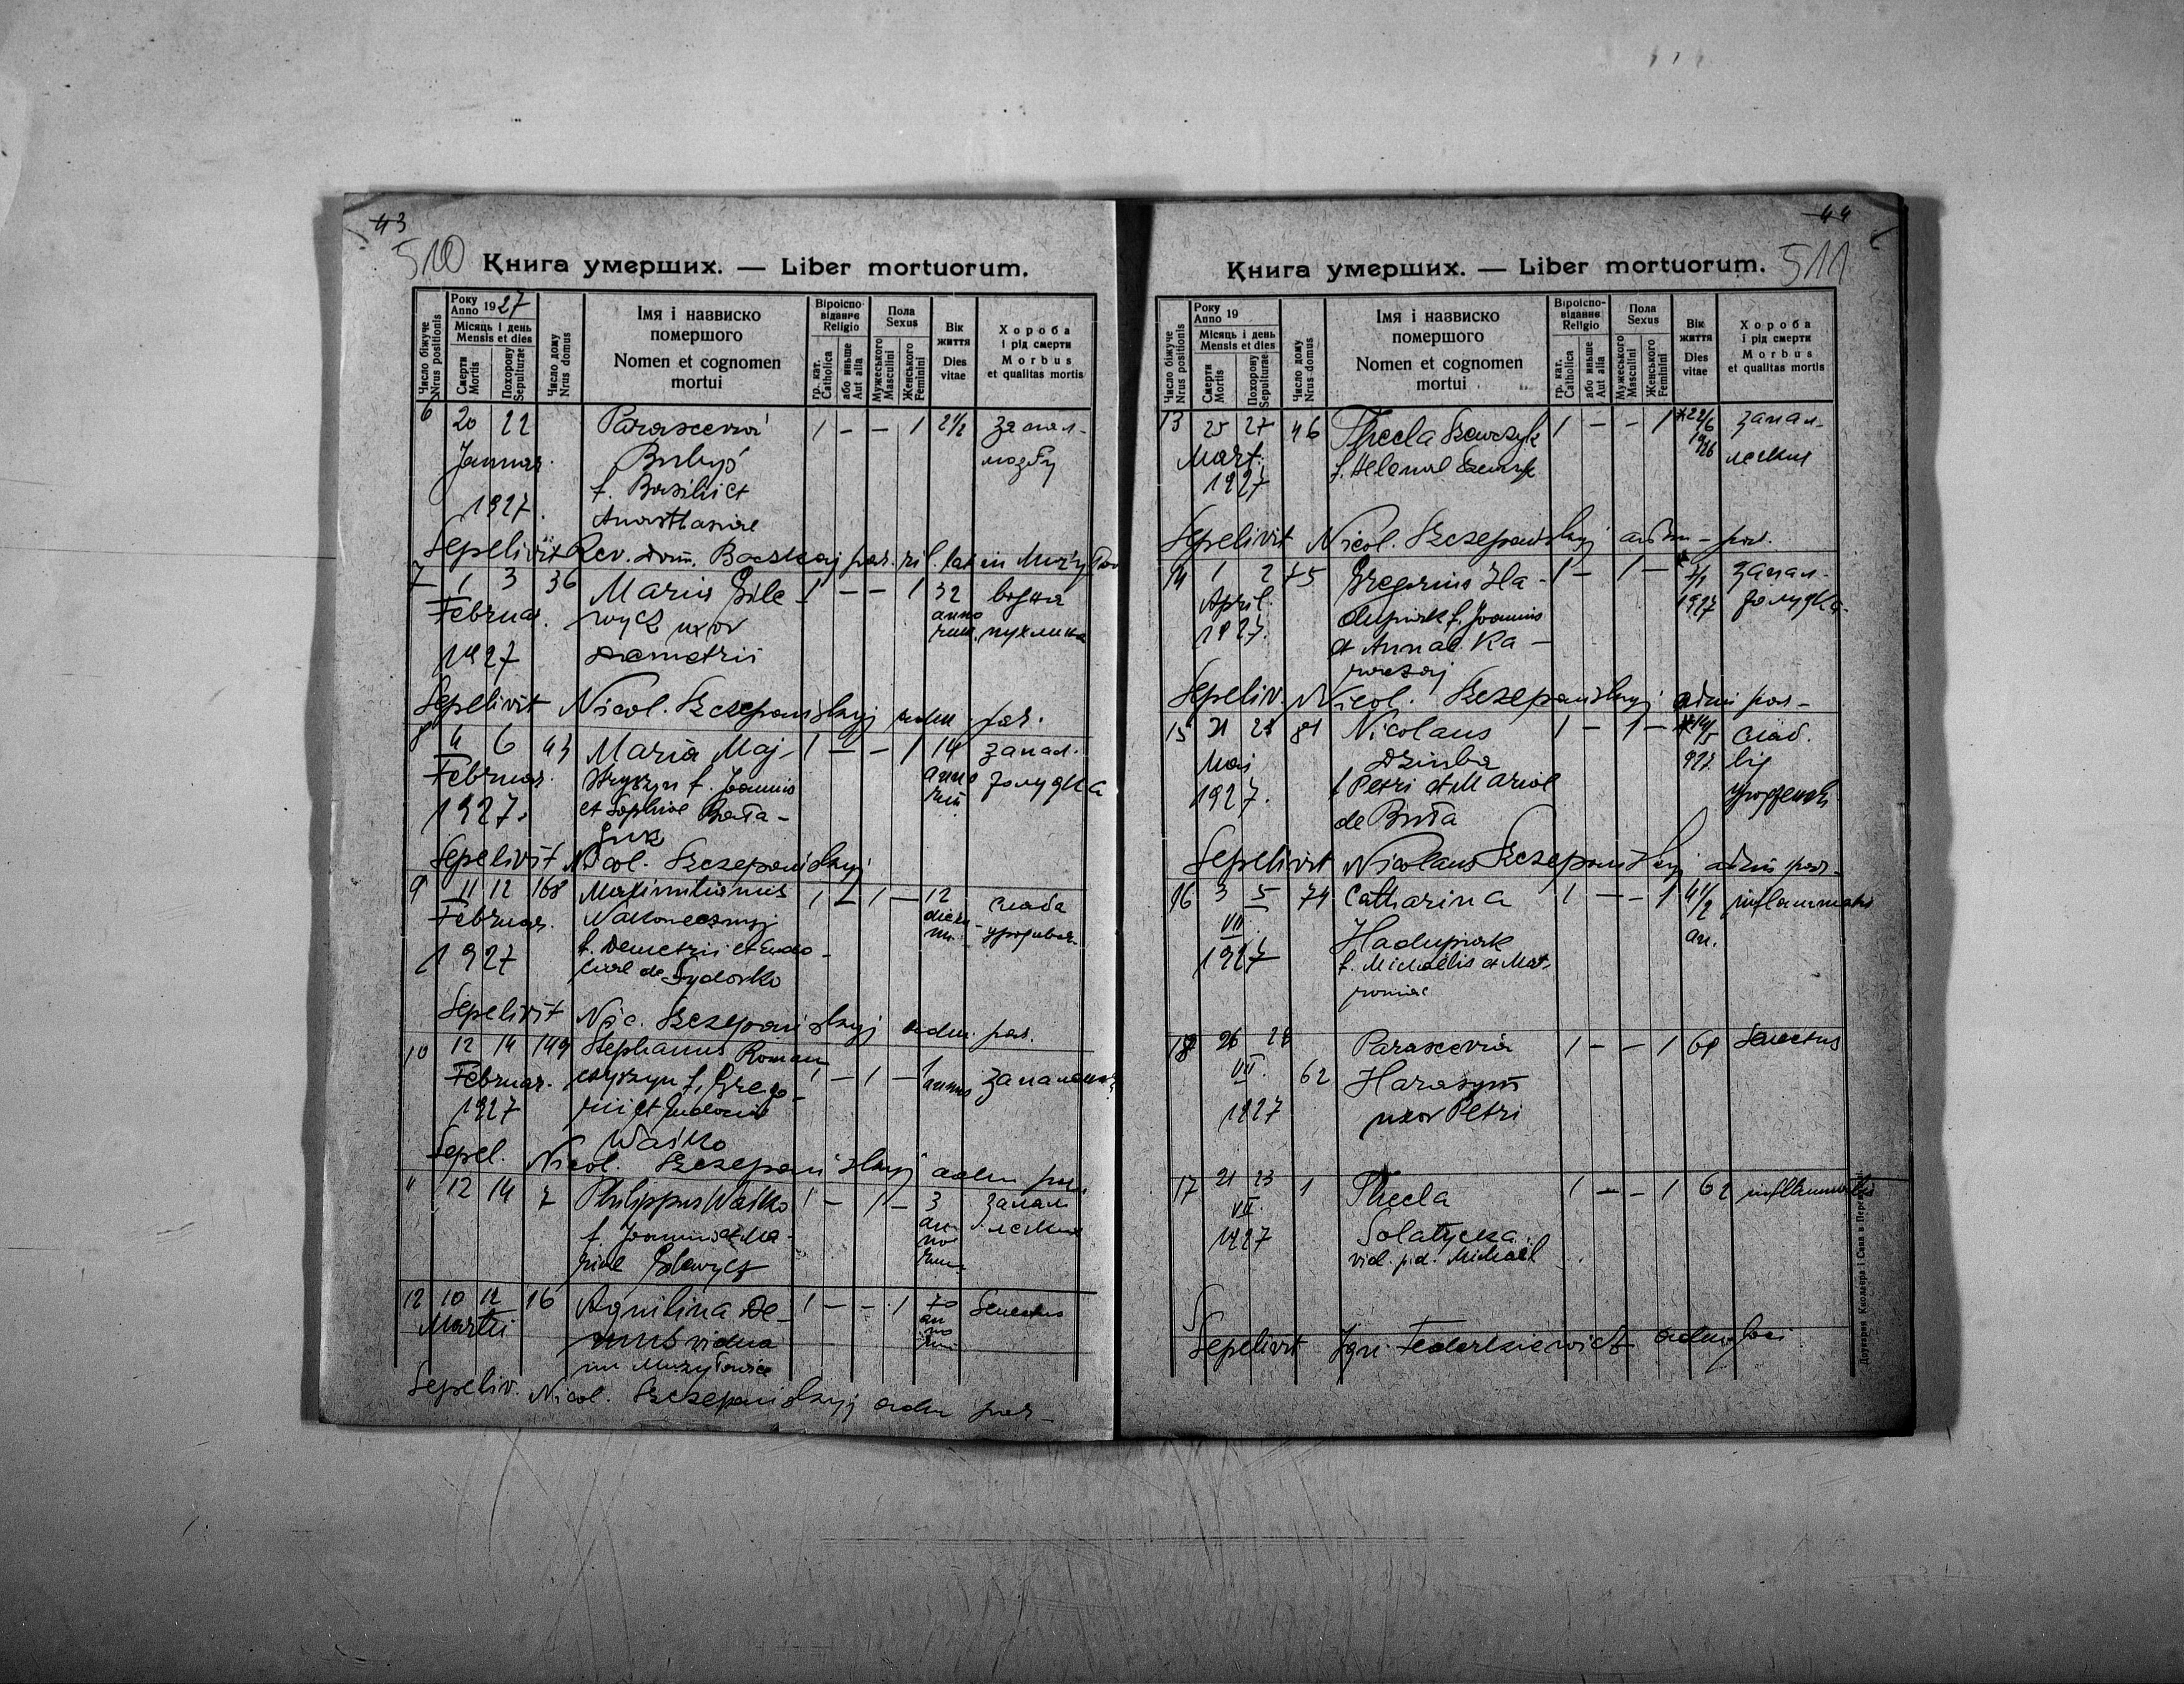 43
510
Книга умерших. — Liber mortuorum.
Число біжуче
Nrus positionis
Року
Anno 1927
Місяць і день
Mensis et dies
Смерти
Mortis
Похорону
Sepulturae
Число дому
Nrus domus
Імя і назвиско
помершого
Nomen et cognomen
mortui
Віроіспо-
відання
Religio
гр. кат.
Catholica
або иньше
Aut alia
Пола
Sexus
Мужеського
Masculini
Женського
Feminini
Вік
життя
Dies
vitae
Хороба
і рід смерти
Morbus
et qualitas mortis
6 20 22 Parascevia 1 — — 1 2 1/2 запал.
Januar. мозгу
f. Basilii et
1927. Anasthasiae
Sepelivit Rev. Dom. par. rit. lat in
7 1 3 36 Maria Gile- 1 — — 1 32 водна
Februar. wycz uxor anno пухлина
1927 Demetrii rum.
Sepelivit Nicol. Szczepaniskyj adm par.
8 4 6 43 Maria Maj- 1 — — 1 14 запал.
Februar. f. Joannis anno
1927. et Sophiae rum
Sepelivit Nicol. Szczepaniskyj
9 11 12 168 Maximilianus 1 — 1 — 12 слаба
Februar. Nakonecznyj dierum
1927 f. Demetrii et Eudo-
ciae de Sydorko
Sepelivit Nic. Szczepaniskyj adm. par.
10 12 14 149 Stephanus Roman-
Februar. czyszyn f. Grego- 1 — 1 — 1 annus
1927 rii et Eudociae
Waśko
Sepel. Nicol. Szczepaniskyj adm par.
11 12 14 7 Philippus Waśko 1 — 1 — 3 запал
f. Joannis et Ma- an- легких
riae Gilewycz no-
rum.
12 10 12 16 Aquilina De- 1 — — 1 70 Senectus
Martii vidua an
in no
rum
Sepeliv. Nicol. Szczepaniskyj adm par
44
511
Книга умерших. — Liber mortuorum.
Число біжуче
Nrus positionis
Року
Anno 19
Місяць і день
Mensis et dies
Смерти
Mortis
Похорону
Sepulturae
Число дому
Nrus domus
Імя і назвиско
помершого
Nomen et cognomen
mortui
Віроіспо-
відання
Religio
гр. кат.
Catholica
або иньше
Aut alia
Пола
Sexus
Мужеського
Masculini
Женського
Feminini
Вік
життя
Dies
vitae
Хороба
і рід смерти
Morbus
et qualitas mortis
13 25 27 46 Thecla Szewczyk 1 — — 1 *22/6 запал-
Mart. f. Helenae Szewczyk 1926 легких
1927
Sepelivit Nicol. Szczepaniskyj adm — par.
14 1 2 75 Gregorius Ha- 1 — 1 — запал-
April. dupiak f. Joannis 1927
1927. et Annae Ka-
Sepeliv. Nicol. Szczepaniskyj adm par-
15 21 23 81 Nicolaus 1 — 1 — слаб.
Maj Dziuba 927. від
1927. f Petri et Mariae
de Buła
Sepelivit Nicolaus Szczepaniskyj adm par-
16 3 5 74 Catharina 1 — — 1 4 1/2 inflammatio
VII Hadupiak an.
1927 f. Michaelis et Mat-
roniae
18 26 28 Parascevia 1 — — 1 Senectus
VII. 62 Harasym
1927 uxor Petri
17 21 23 1 Thecla 1 — — 1 62 inflammatio
VII. Solatycka
1927 vid. p.d. Michael
Sepelivit Ign. Fedorkiewicz adm. loci